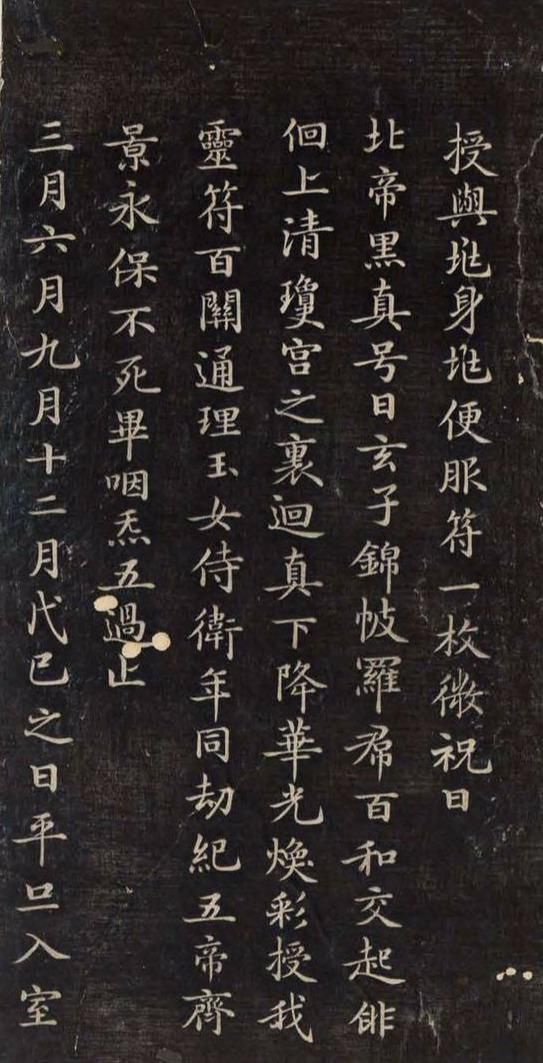 授與垗身垗便服符一枚微祝曰
北帝黑真号曰玄子錦帔羅帬百和交起俳
佪上清瓊宮之裏迴真下降華光煥彩授我
靈符百關通理玉女侍衛年同劫紀五帝齊
景永保不死畢咽炁五過止
三月六月九月十二月戊己之日平旦入室